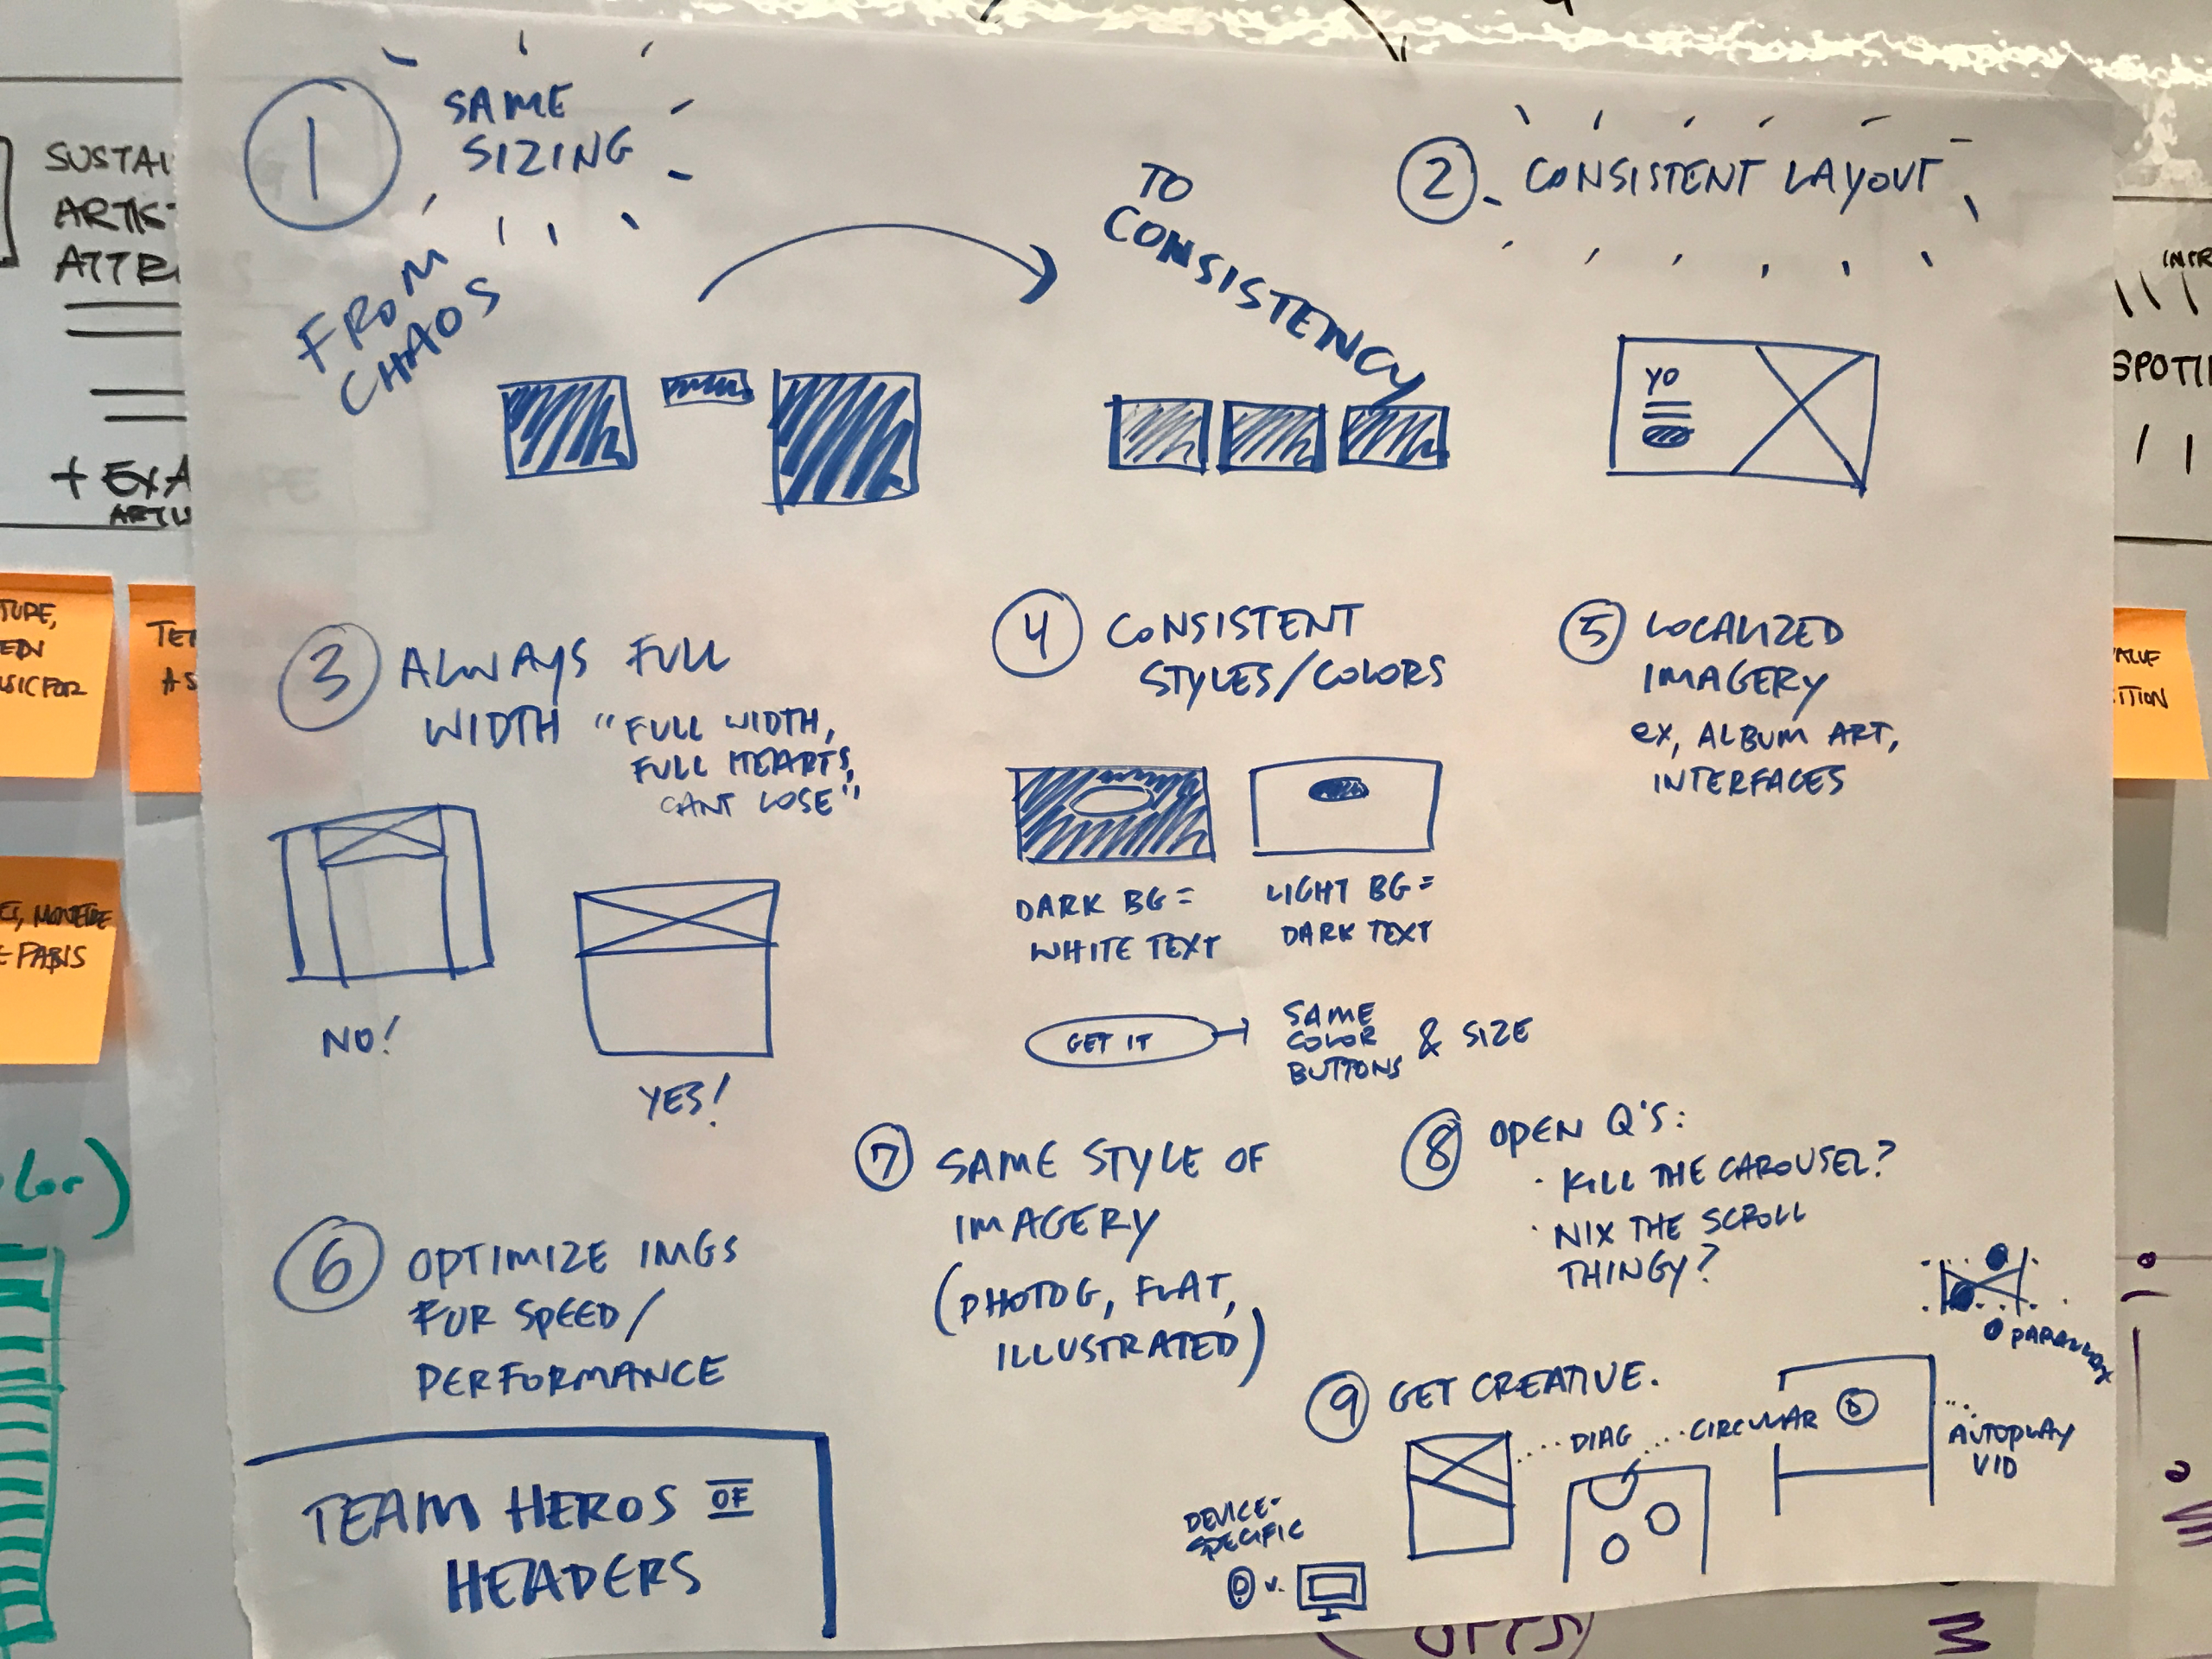 1
SAME
SIZING
FROM
CHAOS
TO
CONSISTENCY
2
CONSISTENT LAYOUT
YO
3
ALWAYS FULL
WIDTH
"FULL WIDTH,
FULL HEARTS,
CANT LOSE"
NO!
YES!
4
CONSISTENT
STYLES/COLORS
DARK BG =
WHITE TEXT
LIGHT BG =
DARK TEXT
GET IT
SAME
COLOR
BUTTONS
& SIZE
5
LOCALIZED
IMAGERY
ex, ALBUM ART,
INTERFACES
6
OPTIMIZE IMGS
FUR SPEED/
PERFORMANCE
7
SAME STYLE OF
IMAGERY
(PHOTOG, FLAT,
ILLUSTRATED)
8
OPEN Q'S:
· KILL THE CAROUSEL?
· NIX THE SCROLL
THINGY?
PARALLAX
9
GET CREATIVE.
DIAG
CIRCULAR
AUTOPLAY
VID
DEVICE-
SPECIFIC
v.
TEAM HEROS OF
HEADERS
SUSTAI
ARTIS
ATTRI
+ EXA
ARTIS
TURE,
SIC FOR
TE
AS
PABIS
lor)
INTR
SPOTI
VALUE
ITION
OPPS